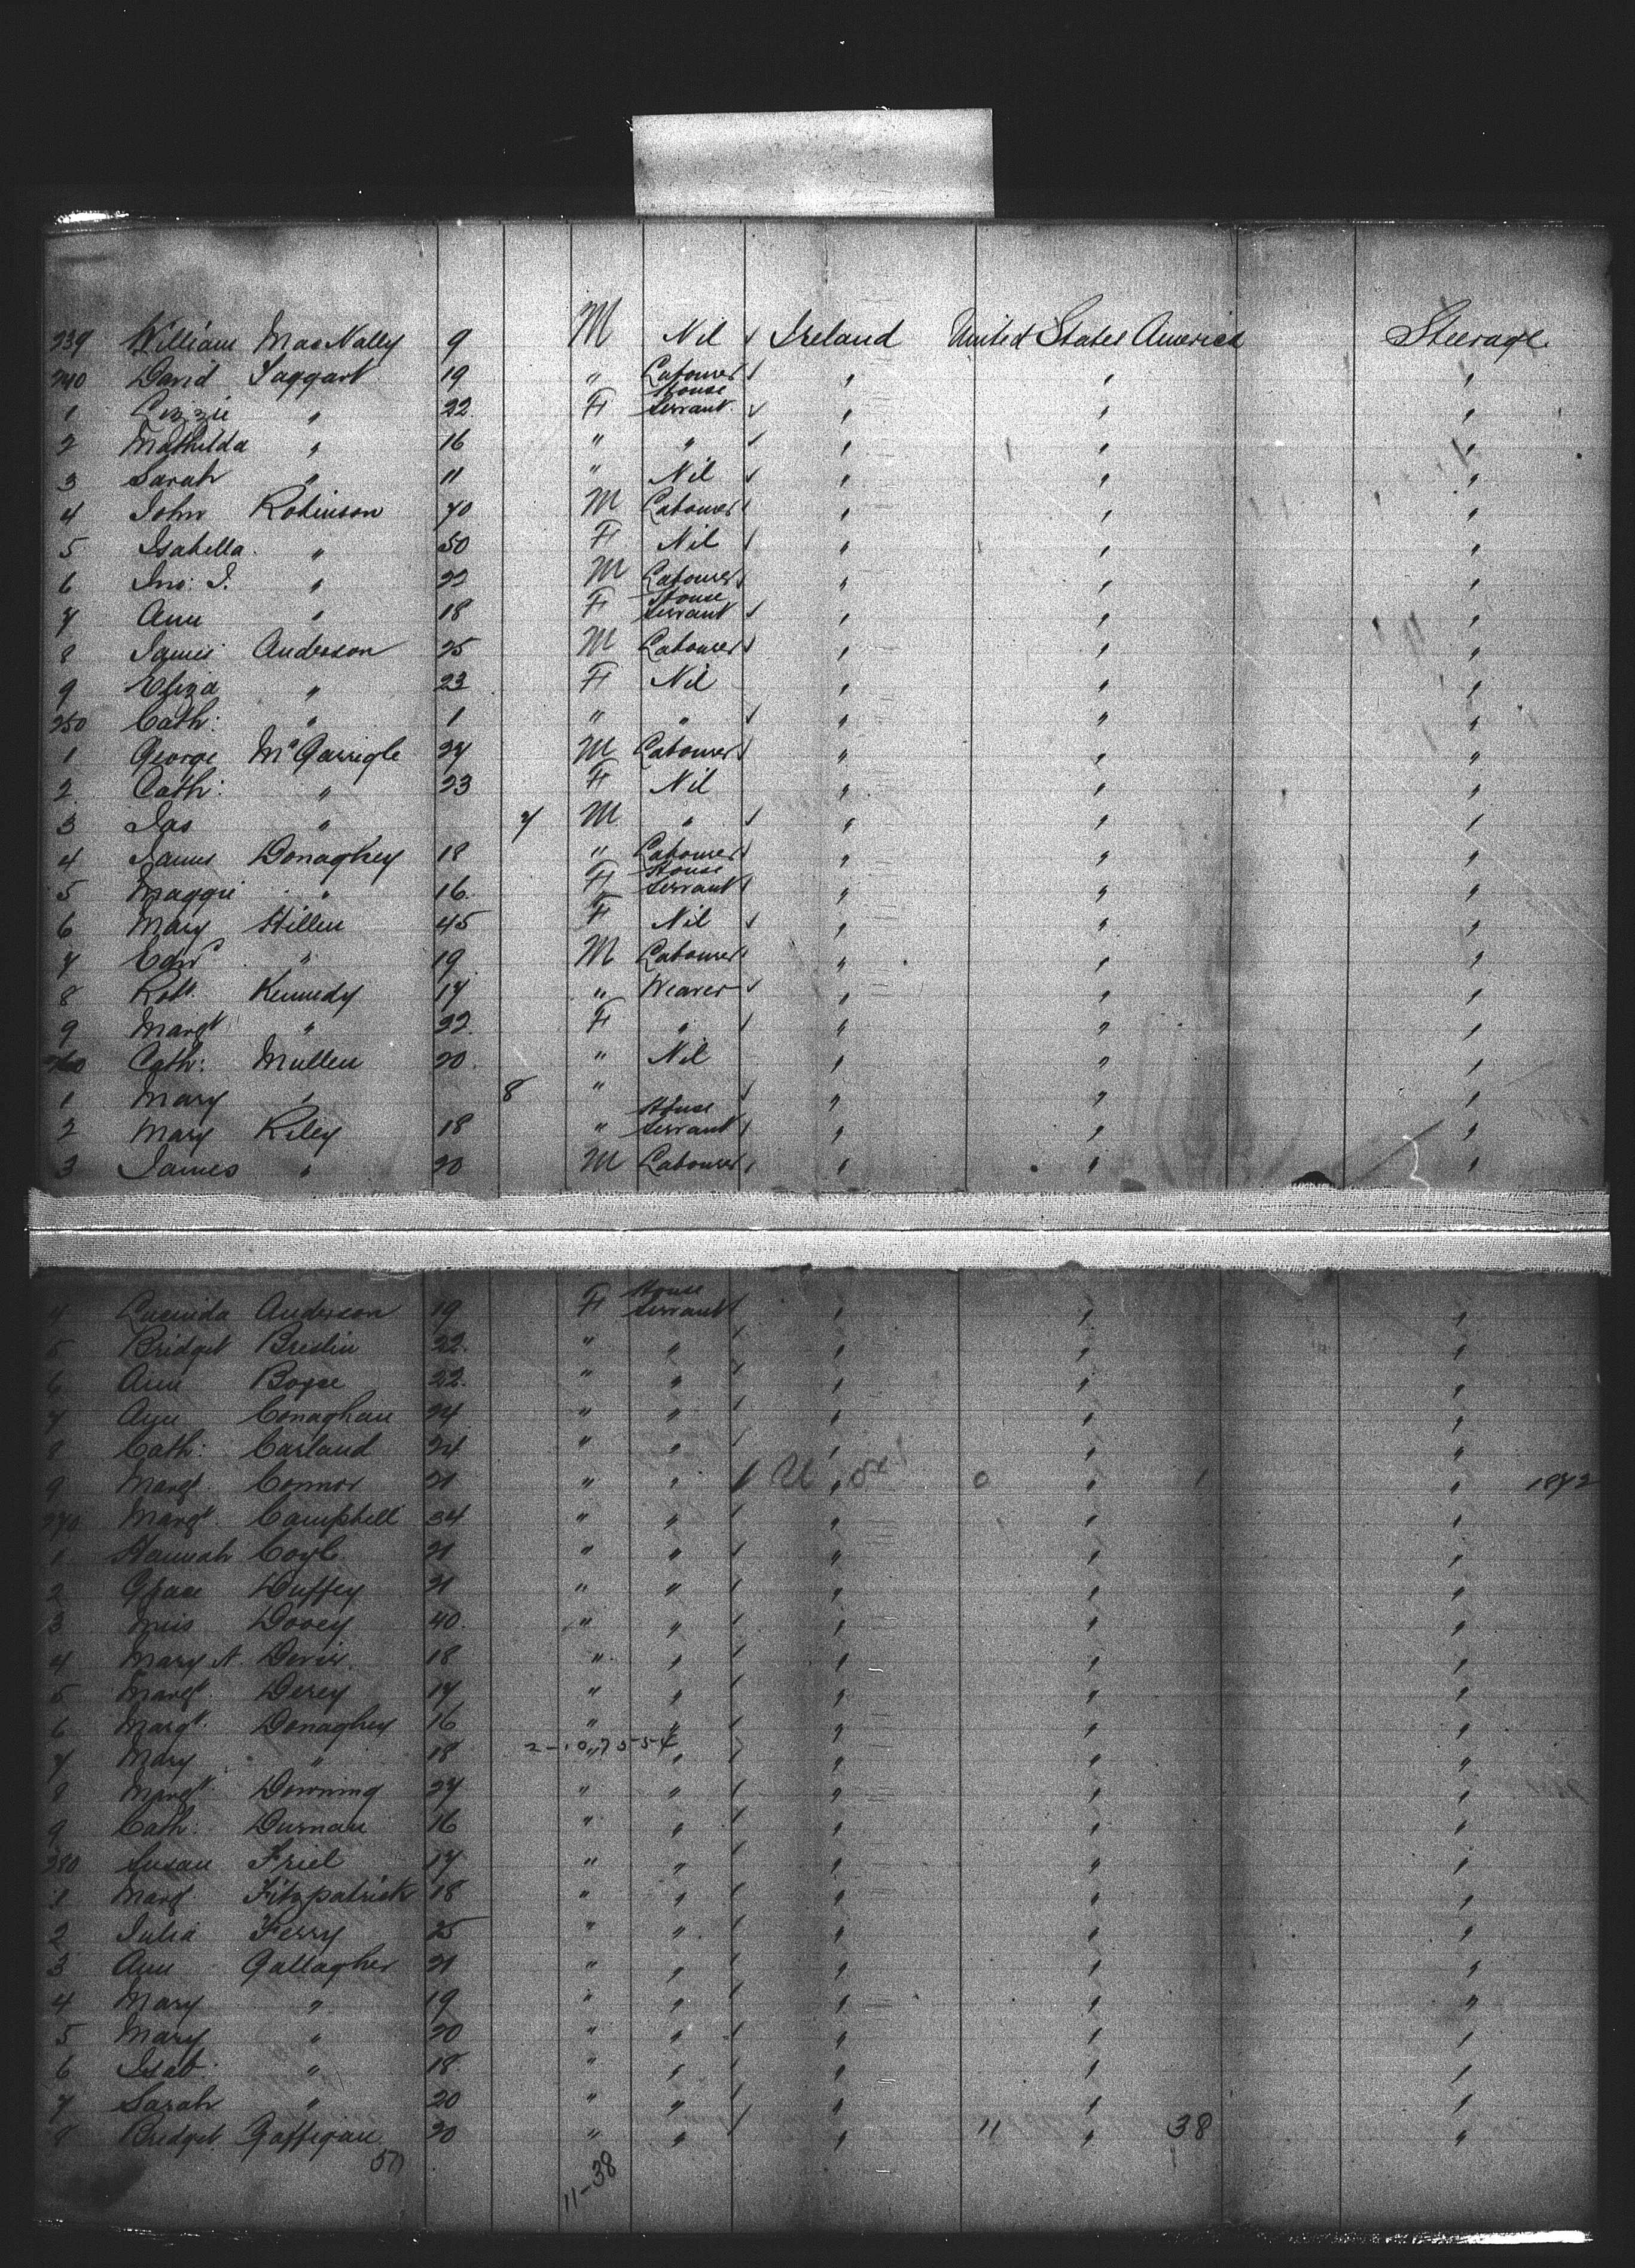 239 William MacNally 9 M Nil √ Ireland United States America Steerage
240 David Taggart 19 " Labourer √ " " "
1 Lizzie " 22 F House Servant √ " " "
2 Mathilda " 16 " " √ " " "
3 Sarah " 11 " Nil √ " " "
4 John Robinson 40 M Labourer √ " " "
5 Isabella " 50 F Nil √ " " "
6 Jno: J. " 22 M Labourer √ " " "
7 Ann " 18 F House Servant √ " " "
8 James Anderson 25 M Labourer √ " " "
9 Eliza " 23 F Nil " " "
250 Cath: " 1 " " √ " " "
1 George McGarrigle 27 M Labourer √ " " "
2 Cath: " 23 F Nil " " "
3 Jas " 7 M " √ " " "
4 James Donaghey 18 " Labourer √ " " "
5 Maggie " 16 F House Servant √ " " "
6 Mary Hillen 45 F Nil √ " " "
7 Edwd " 19 M Labourer √ " " "
8 Robt. Kennedy 17 " Weaver √ " " "
9 Margt " 22 F " √ " " "
260 Cath: Mullen 20 " Nil " " "
1 Mary " 8 " √ " " "
2 Mary Riley 18 " House Servant √ " " "
3 James " 20 M Labourer √ " " "
4 Lucinda Anderson 19 F House Servant √ " " "
5 Bridget Breslin 22 " " √ " " "
6 Ann 22 " " √ " " "
7 Ann Conaghan 24 " " √ " " "
8 Cath: Carland 24 " " √ " " "
9 Margt. Connor 21 " " √ " " " 1872
270 Margt. Campbell 34 " " √ " " "
1 Hannah Coyle 21 " " √ " " "
2 Grace Duffey 21 " " √ " " "
3 Dovey 40 " " √ " " "
4 Mary A. 18 " " √ " " "
5 Margt. 17 " " √ " " "
6 Margt. Donaghey 16 " " √ " " "
7 Mary " 18 2-10,7554 " " √ " " "
8 Margt. Downing 27 " " √ " " "
9 Cath: Durnan 16 " " √ " " "
280 Susan Friel 17 " " √ " " "
1 Margt. Fitzpatrick 18 " " √ " " "
2 Julia Ferry 25 " " √ " " "
3 Ann Gallagher 21 " " √ " " "
4 Mary " 19 " " √ " " "
5 Mary " 20 " " √ " " "
6 Isab: " 18 " " √ " " "
7 Sarah " 20 " " √ " " "
8 Bridget Gaffigan 20 " " √ " 11 " 38 "
50 11-38